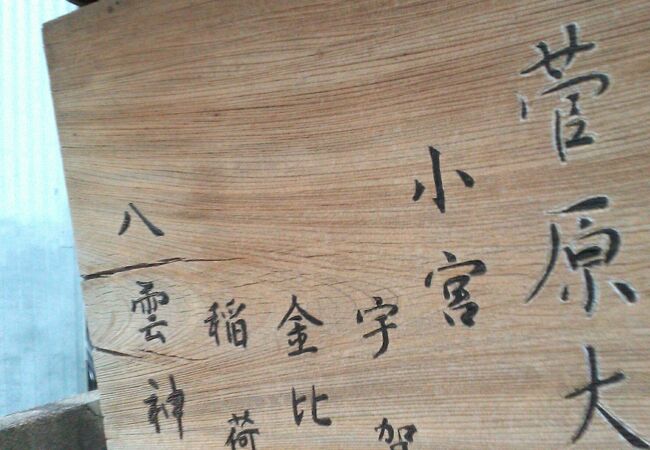 菅原大
小宮
宇賀
金比
稲荷
八雲神